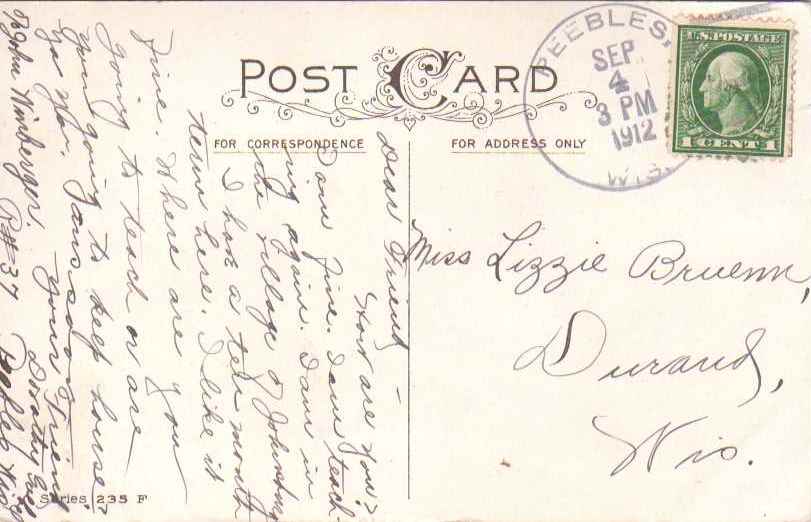 POST CARD
FOR CORRESPONDENCE
FOR ADDRESS ONLY
PEEBLES,
SEP
4
3 PM
1912
WIS.
U.S. POSTAGE
1 CENT 1
Miss Lizzie Bruenn,
Durand,
Wis.
Dear Friend -
How are you?
I am fine. I am teach-
ing again. I am in
the village of Johnsburg
I have a ten month
term here. I like it
fine. Where are you
going to teach or are
you going to keep house?
Your Friend
Dorothy
% John Winberger. R#37 Peebles Wis.
Series 235 F